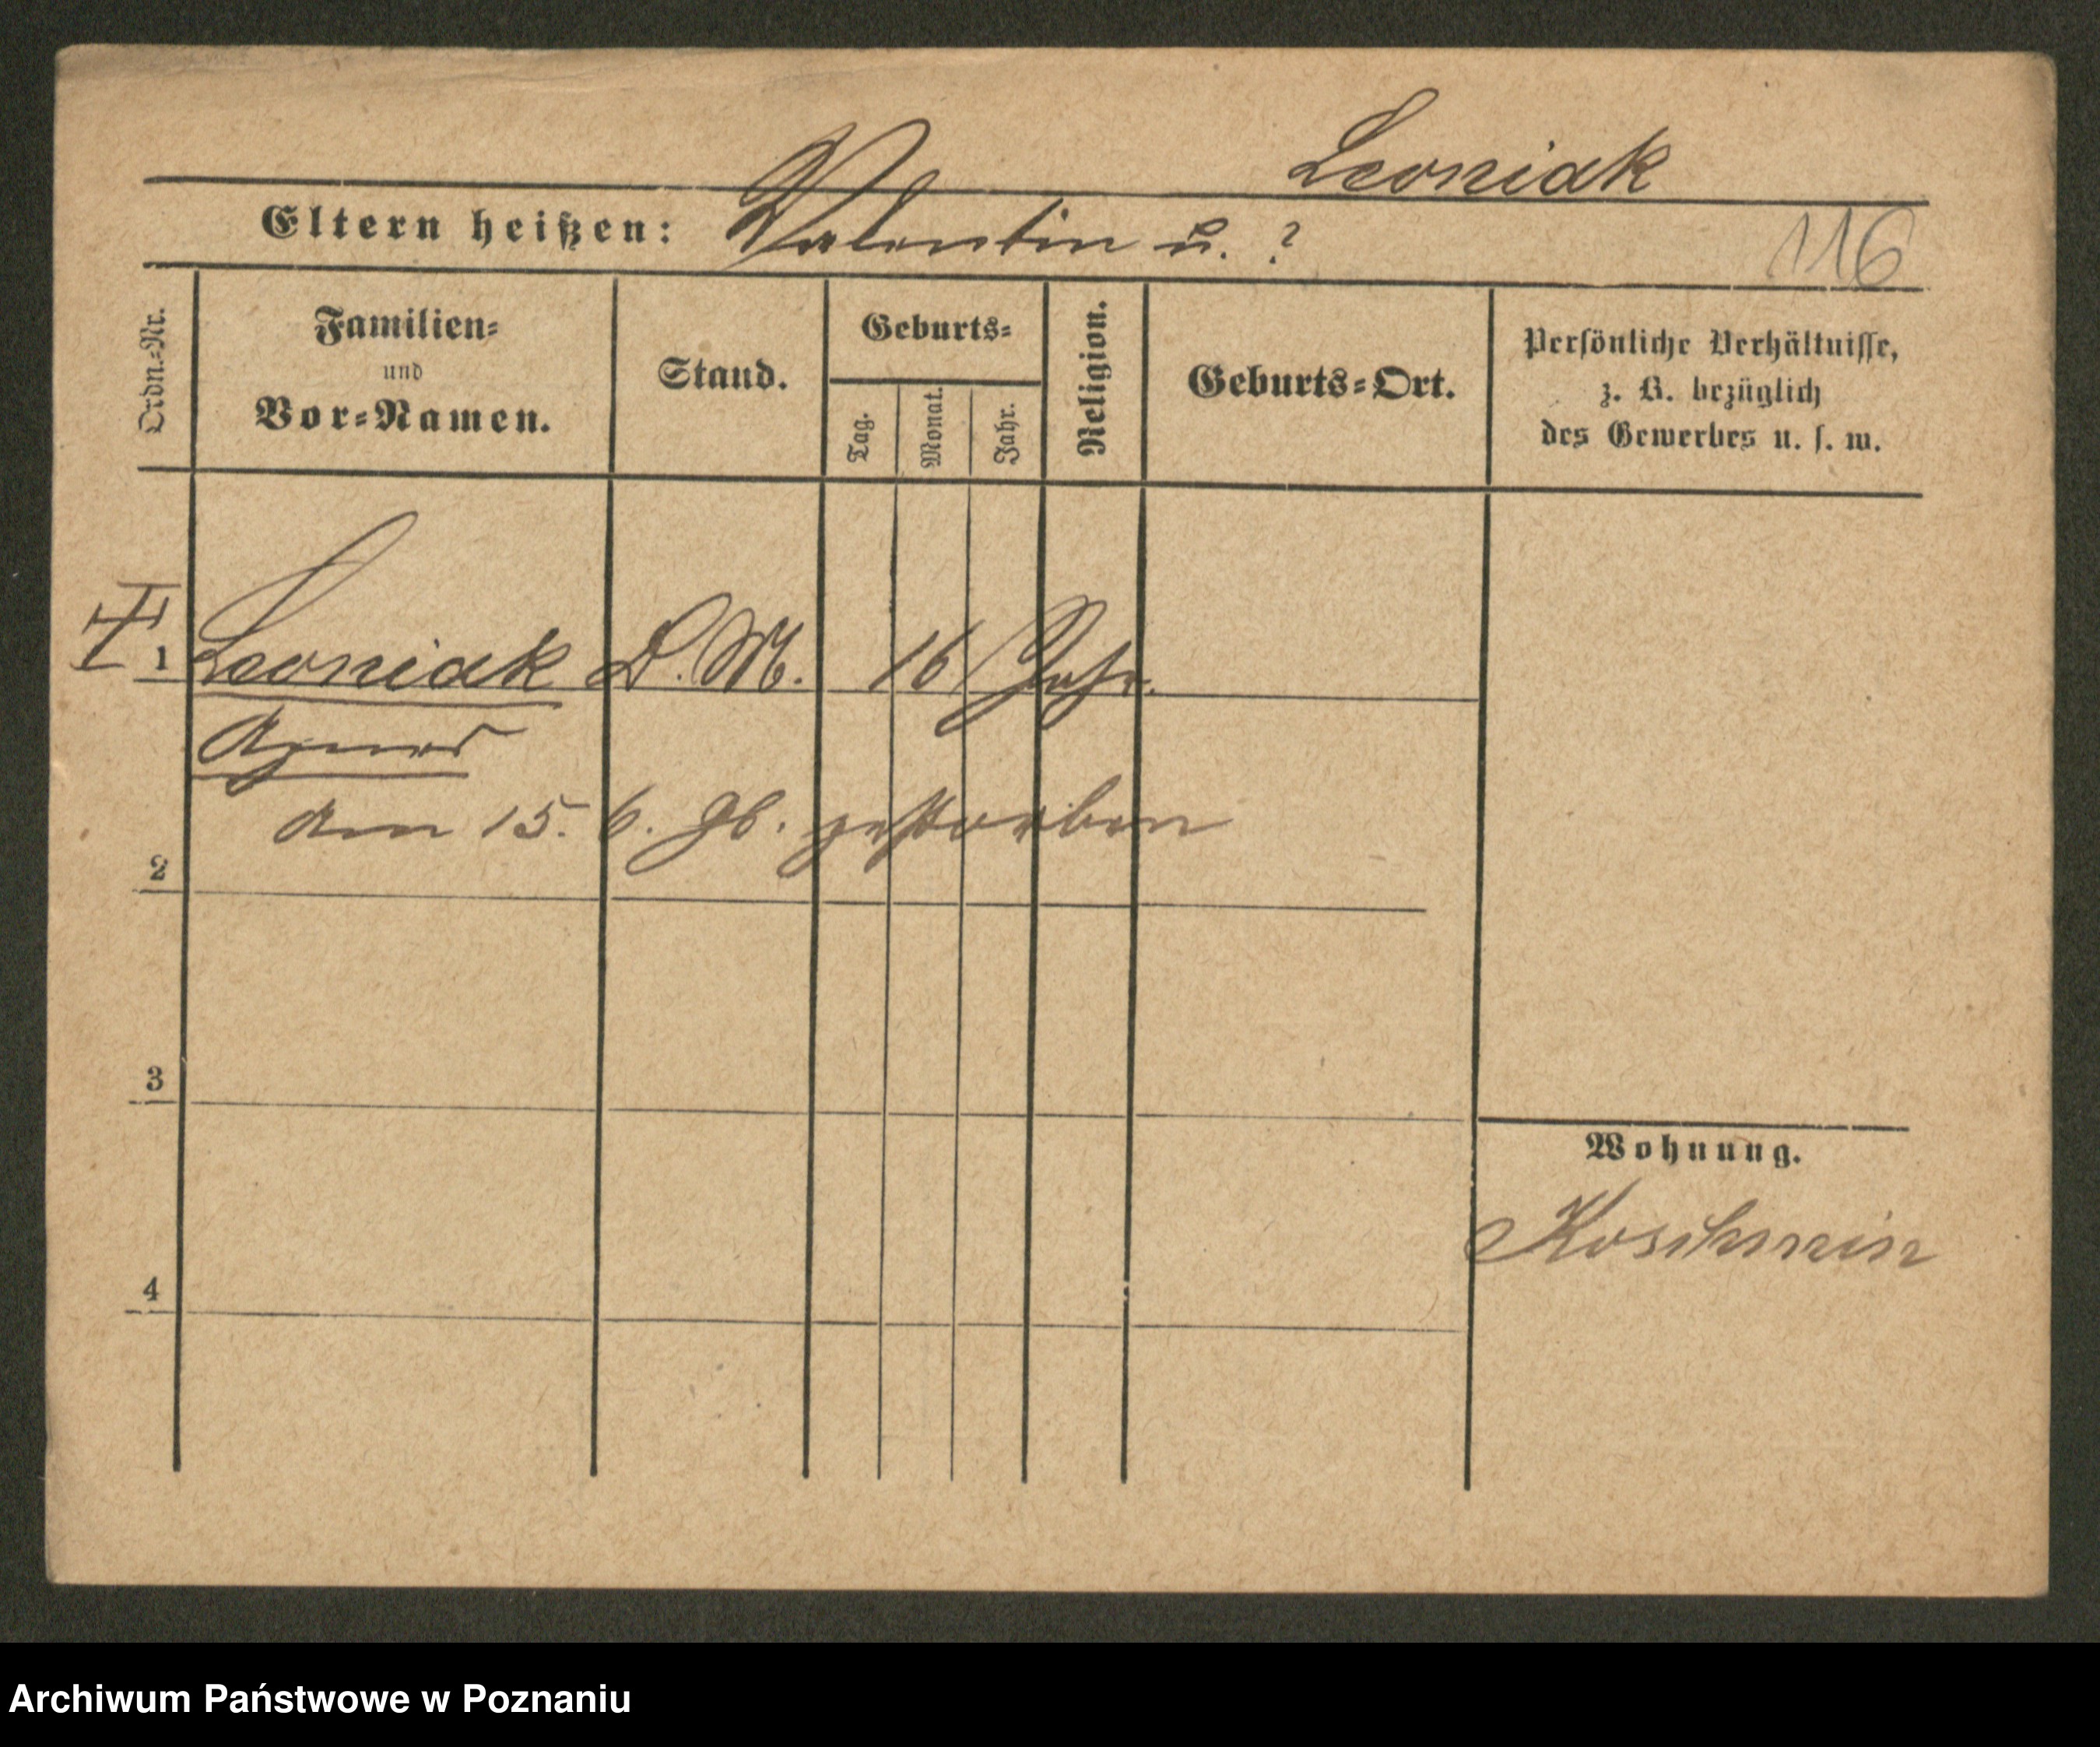 Leoniak
Eltern heißen: Valentin u. ?
116
Ordn.-Nr.
Familien-
und
Vor-Namen.
Stand.
Geburts-
Tag.
Monat.
Jahr.
Religion.
Geburts-Ort.
Persönliche Verhältnisse,
z. B. bezüglich
des Gewerbes u. s. w.
1 Leoniak D. M. 16 Jahr.
Agnes
am 15. 6. 96. gestorben
2
3
Wohnung.
Koschmin
4
Archiwum Państwowe w Poznaniu